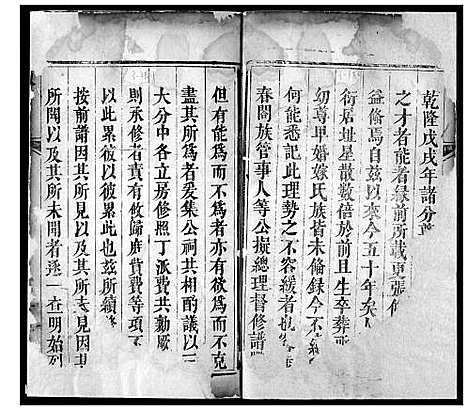 乾隆戊戌年諸分
之才者能者緣前所載更張
益脩焉自茲以來今五十年矣
衍居址星散數倍於前且生卒葬
幼尊卑婚嫁氏族皆未備錄今不
何能悉記此理勢之不容緩者也
春閤族管事人等公擬總理督修譜
但有能爲而不爲者亦有欲爲而不克
盡其所爲者爰集公祠共相酌議以
大分中各立房修照丁派費共勷厥
則承修者責有攸歸庶貲費等項
以此累彼以彼累此也茲所續
按前譜因其所見以及其所未見因其
所聞以及其所未聞者逐一查明始列